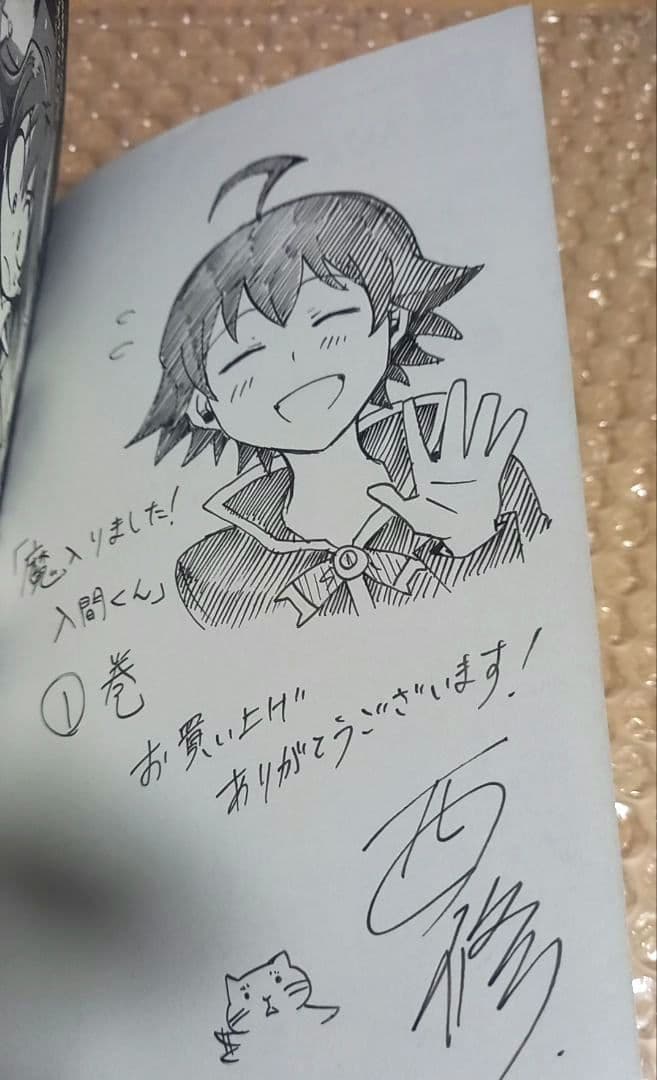 「魔入りました!
入間くん」
①巻
お買い上げ
ありがとうございます!
西修